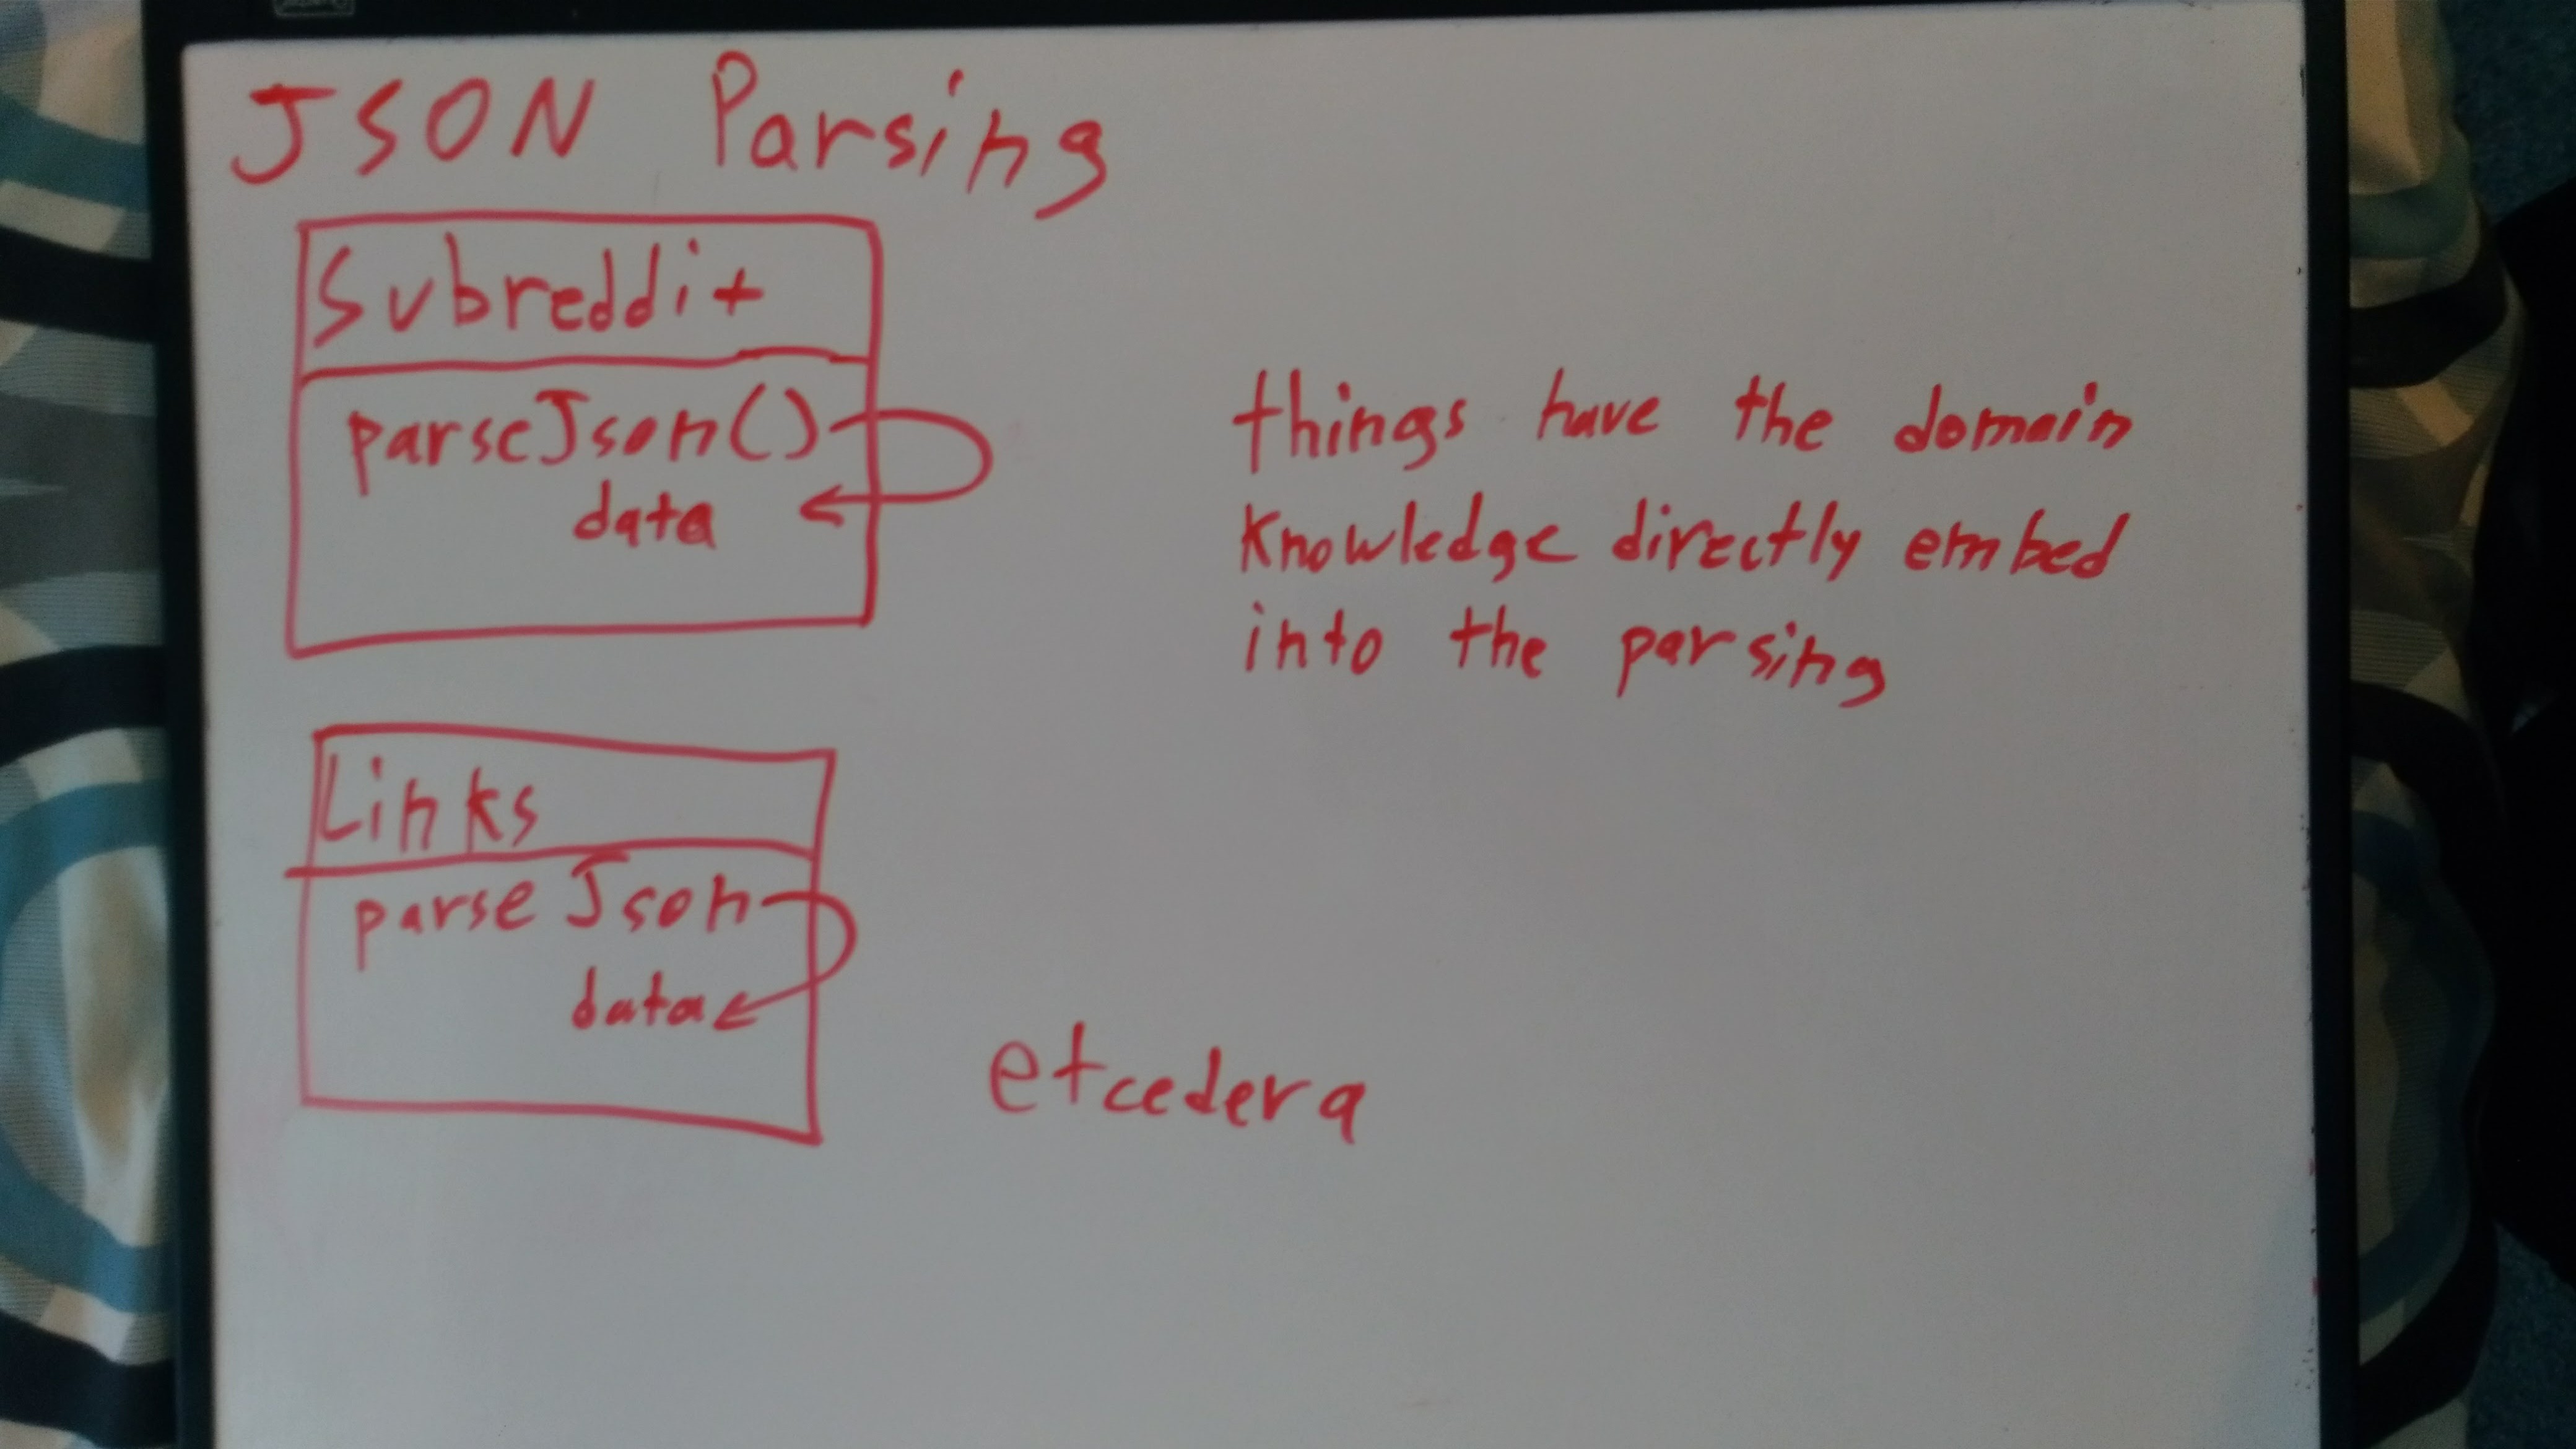 JSON Parsing
Subreddit
parseJson()
data
things have the domain
knowledge directly embed
into the parsing
Links
parse Json
data
etcedera